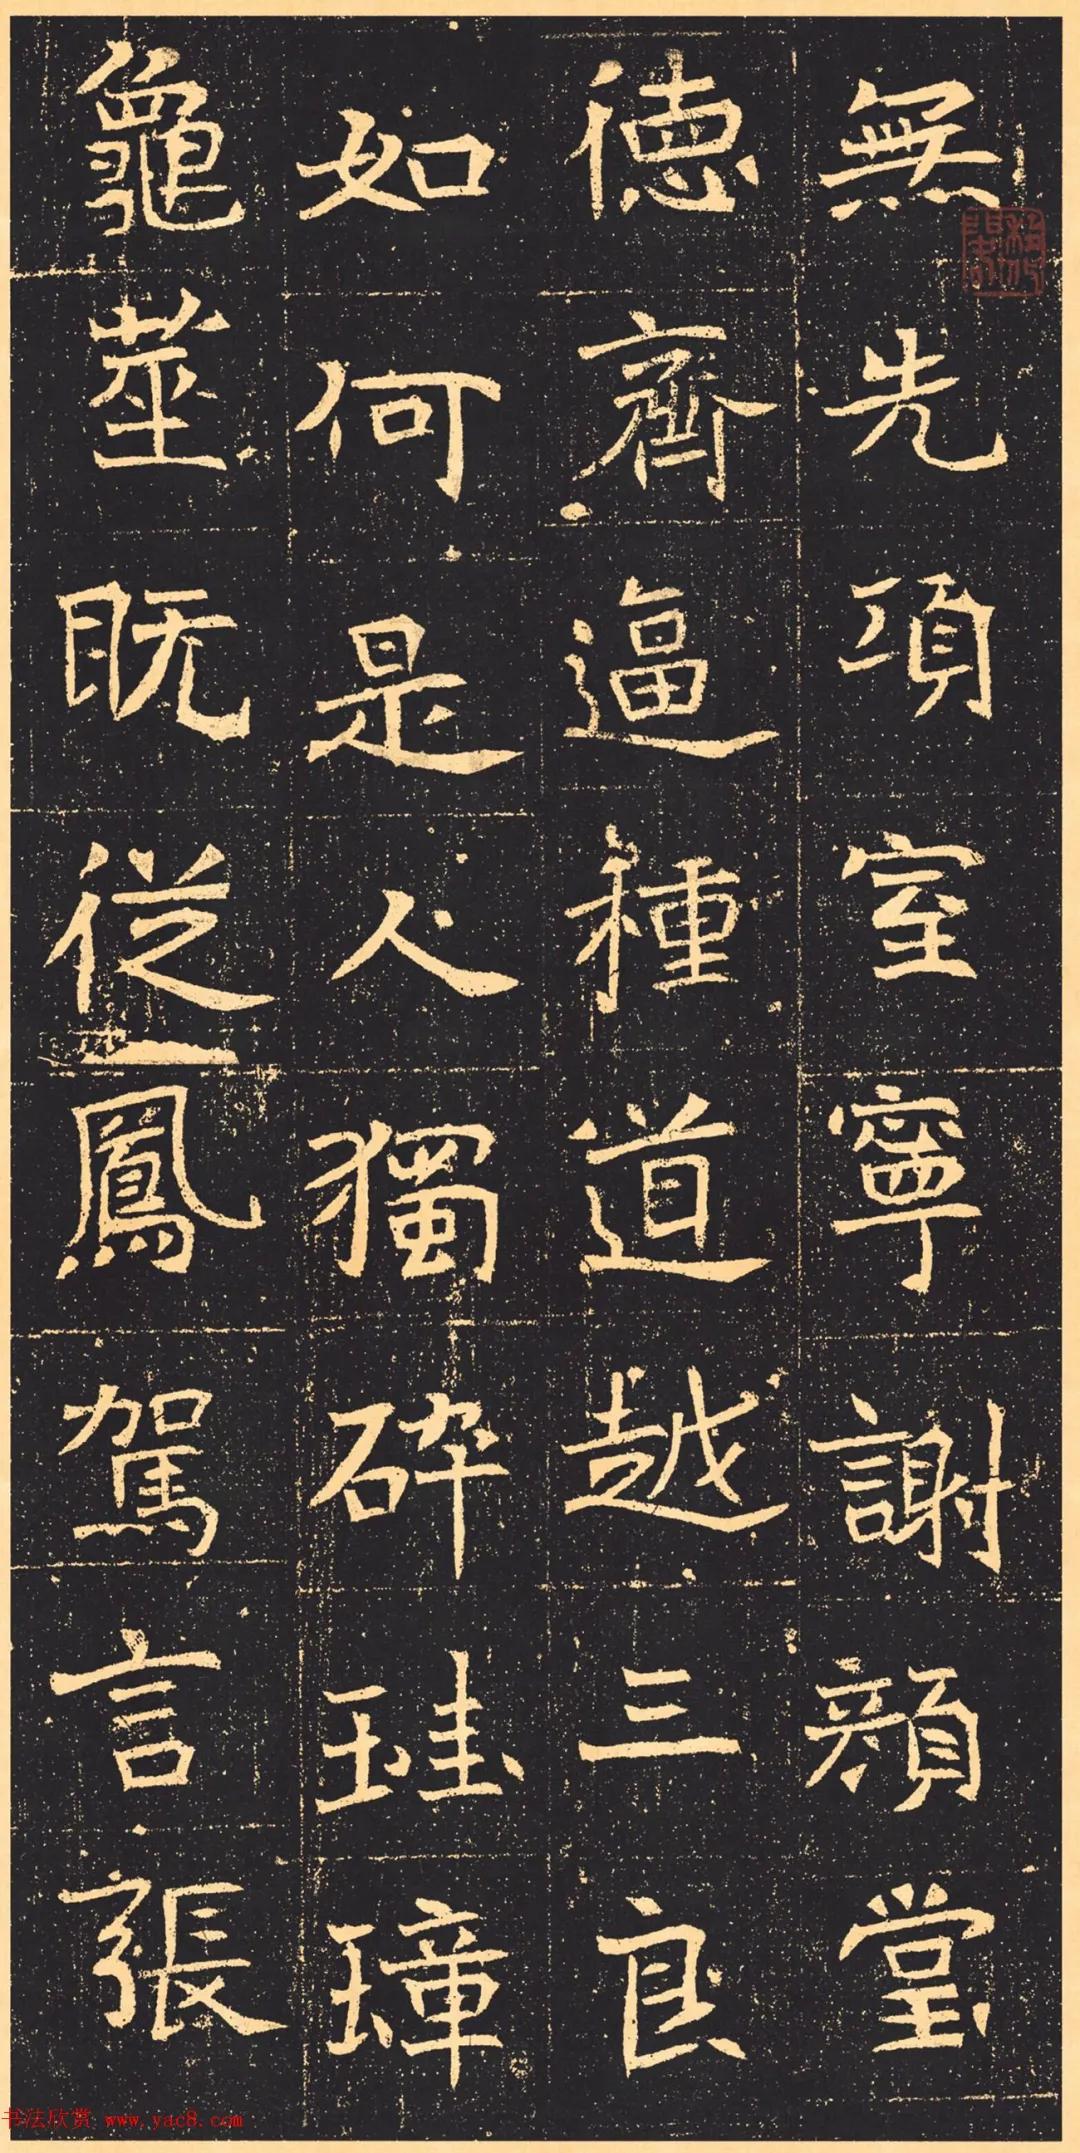 無先項室寧謝顔堂
徳齊逼種道越三良
如何是人獨碎珪璋
龜莁既從鳳駕言張
书法欣赏 www.yac8.com